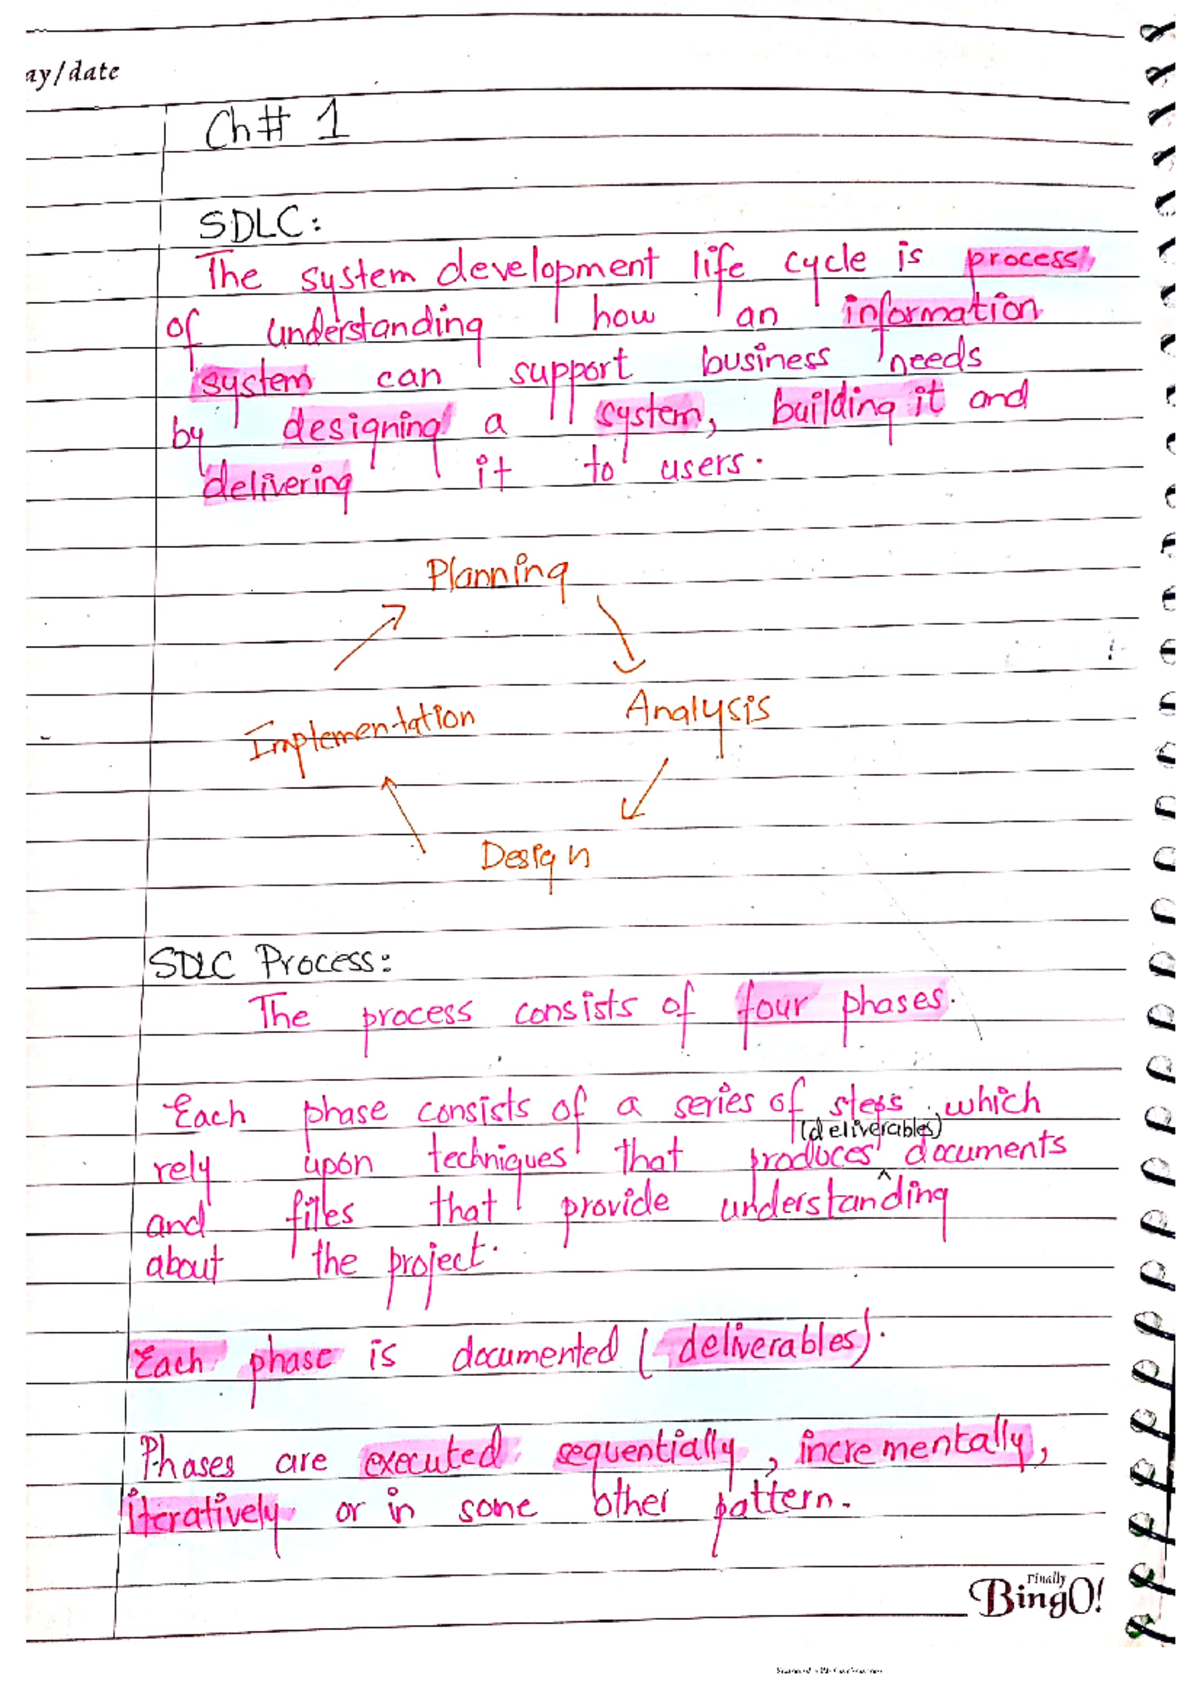 ay/date
Ch# 1
SDLC:
The system development life cycle is process
of understanding how an information
system can support business needs
by designing a system, building it and
delivering it to users.
Planning
Implementation
Analysis
Design
SDLC Process:
The process consists of four phases.
Each phase consists of a series of steps, which
(deliverables)
rely upon techniques that produces ^ documents
and files that provide understanding
about the project.
Each phase is documented (deliverables).
Phases are executed sequentially, incrementally,
iteratively or in some other pattern.
Finally
BingO!